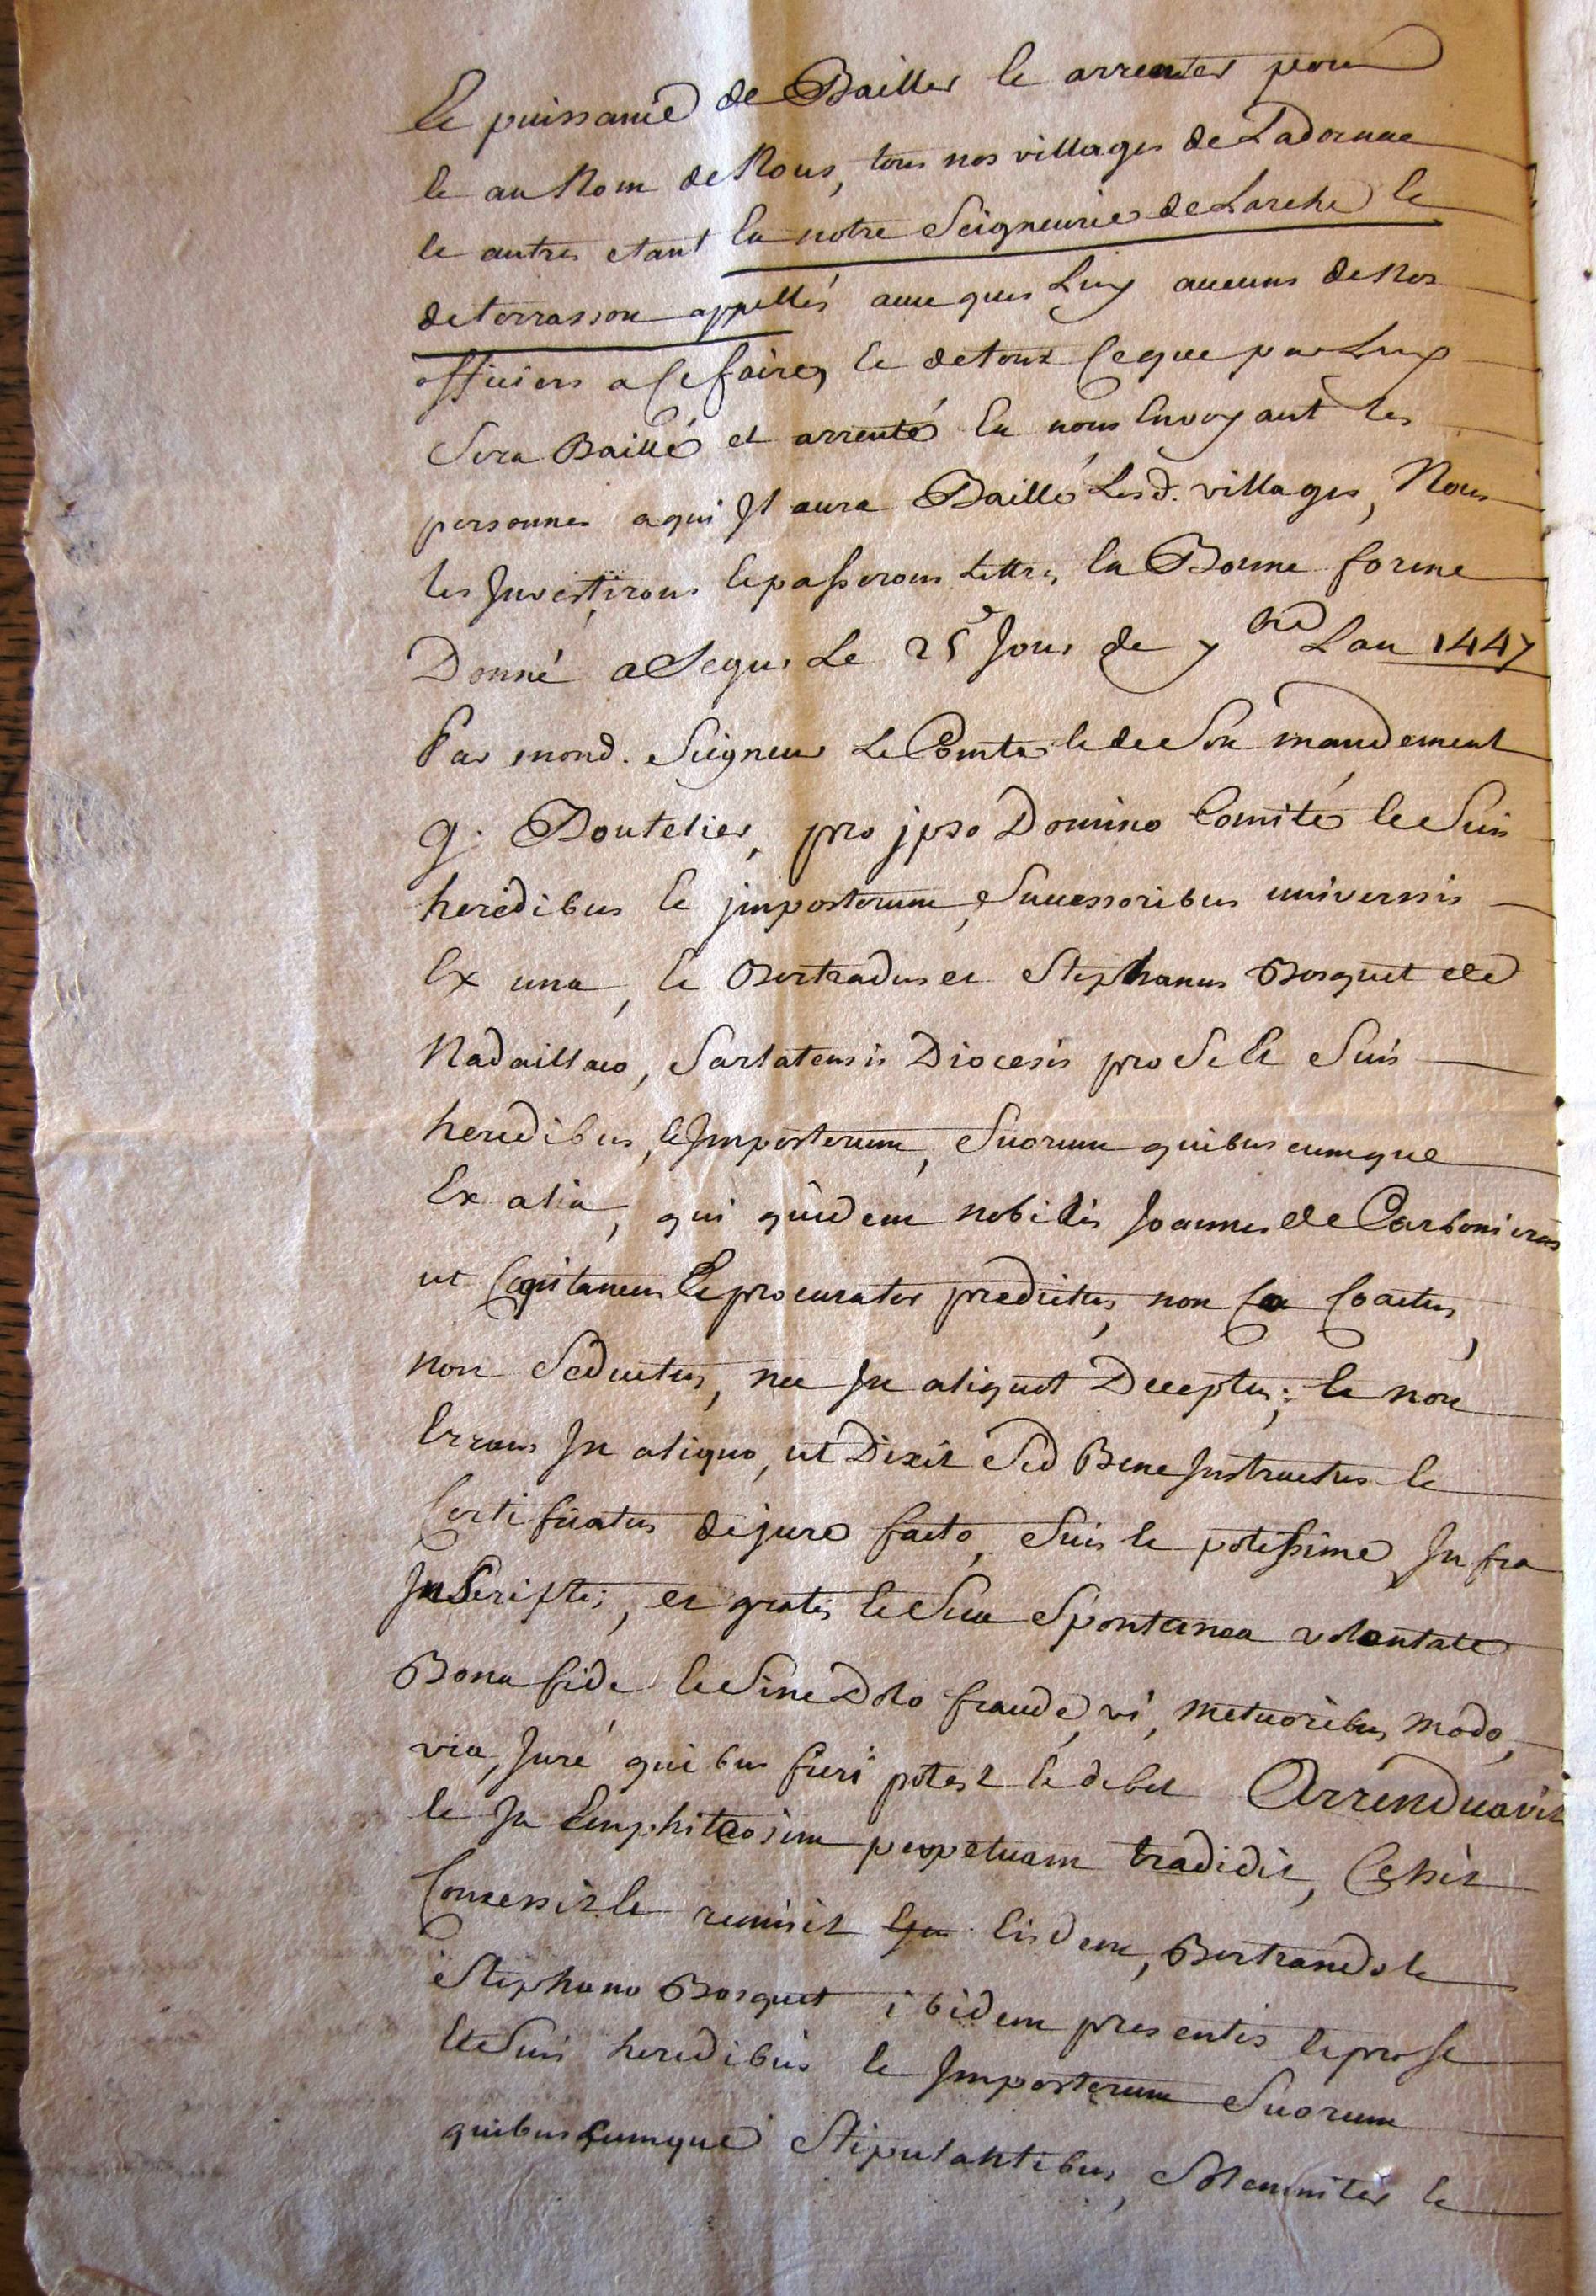 Et puissance de Bailler Et arrenter pour
Et au Nom de Nous, tous nos villages de Ladornac
Et autres etant En notre Seigneurie de Larche Et
de terrasson appellés avec ques Luy aucuns de Nos
officiers a Ce faire, Et de tout Ce que par Luy
Sera Baillé et arrenté En nous Envoyant les
personnes a qui Jl aura Baillé Lesd. villages, Nous
les Jnvestirons Et passerons Lettres En Bonne forme
Donné a Segur Le 25e Jour de 7bre Lan 1447
Par mond. Seigneur Le Comte Et de Son mandement
g. Boutelier, pro jpso Domino Comité Et Suis
heredibus Et jmposterum, Successoribus universis
Ex una, Et Bertradus et Stephanus Bosquet de
Nadaillaco, Sarlatensis Diocesis pro Se Et Suis
heredibus, Et Jmposterum, Suorum quibuscumque
Ex alia, qui quidem nobilis Joannes de Carbonieras
ut Capitaneus Et procurator predictus, non Co Coactus,
non Seductus, nec Jn aliquot Deceptus; Et non
Errans Jn aliquo, ut Dixit Sed Bene Jnstructus Et
Certificatus de jure facto, Suis Et potissime Jn fra
JnScriptis, et gratis Et Sua Spontanea voluntate
Bona fide Et Sine Dolo fraude, vi, metuoribus, modo,
via, Juré quibus fieri potest Et debet Arrenduavit
Et Jn Emphiteosim perpetuam tradidit, Cessit
Concessit Et remisit Eisdem, Bertrando Et
Stephano Bosquet ibidem presentis Et pro Se
Et Suis heredibus Et Jmposterum Suorum
quibuscumque Stipulantibus, Solemniter Et